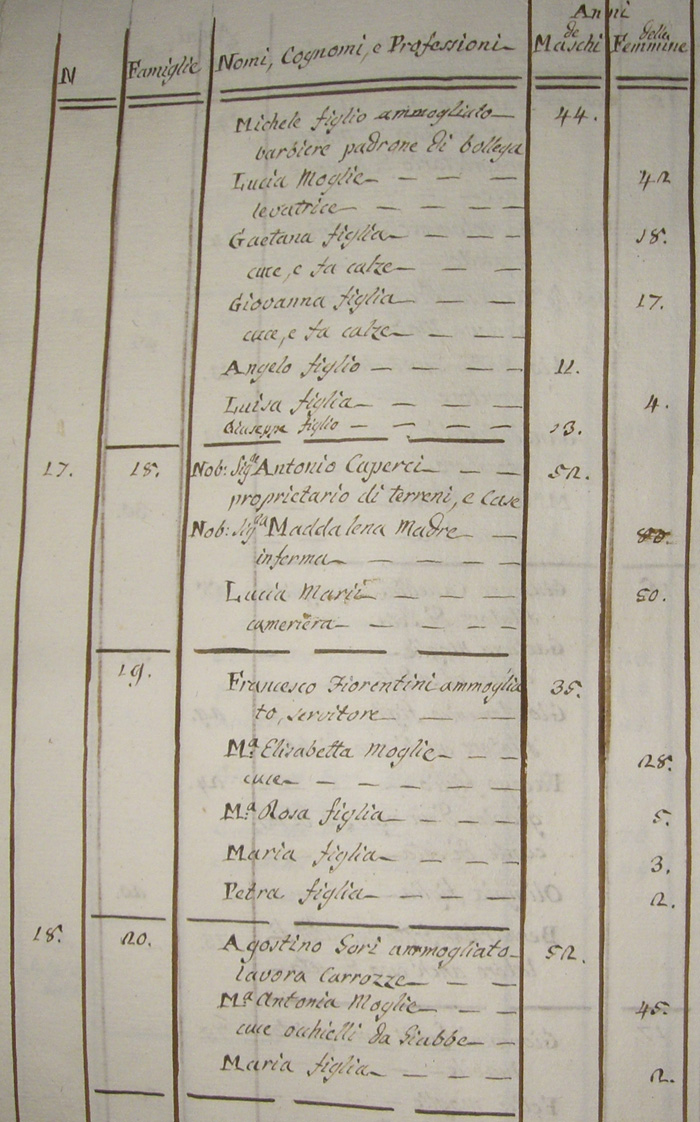 Anni
N Famiglie Nomi, Cognomi, e Professioni de Maschi delle Femmine
Michele figlio ammogliato 44.
barbiere padrone di bottega
Lucia Moglie 42
levatrice
Gaetana figlia 18.
cuce, e fa calze
Giovanna figlia 17.
cuce, e fa calze
Angelo figlio 11.
Luisa figlia 4.
Giuseppe figlio 13.
17. 18. Nob: Sigr Antonio Caperci 52.
proprietario di terreni, e Case
Nob: Sigra Maddalena Madre 80.
inferma
Lucia Marii 50.
cameriera
19. Francesco Fiorentini ammoglia 35.
to, servitore
Ma Elisabetta Moglie 28.
cuce
Ma Rosa figlia 5.
Maria figlia 3.
Petra figlia 2.
18. 20. Agostino Gori ammogliato 52.
lavora Carrozze
Ma Antonia Moglie 45.
cuce ochielli da Giabbe
Maria figlia 2.